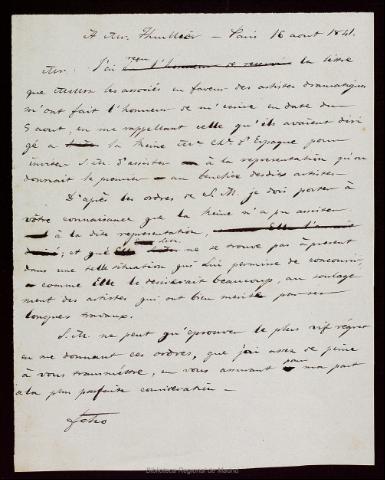 A Mr. Thuillier — Paris 16 aout 1841.
Mr. J'ai reçu l'honneur de recevoir la lettre
que Messrs les associés en faveur des artistes dramatiques
m'ont fait l'honneur de m'écrire en date du
5 aout, en me rappellant celle qu'ils avaient diri
gé a la Reine Me Chne d'Espagne pour
inviter S.M. d'assister à la representation qu'on
donnait le premier au benefice desdits artistes.
D'après les ordres de S.M. je dois porter à
votre connaissance que la Reine n'a pu assister
à la dite representation,
; et que ne se trouve pas à present
dans une telle situation qui Lui permire de concourir,
comme Elle le desirerait beaucoup, au soulage
ment des artistes qui ont bien merité par ses
longues travaux.
S.M. ne peut qu'éprouver le plus vif régret
en me donnant ces ordres, que j'ai assez de peine
à vous transméttre, en vous assurant pour ma part
a la plus parfaite consideration —
fcho
Biblioteca Regional de Madrid